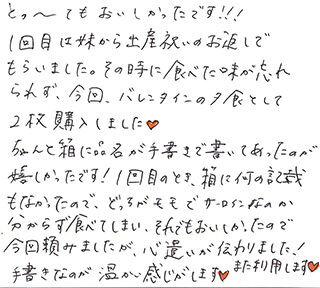 とっ〜てもおいしかったです!!!
1回目は妹から出産祝いのお返しで
もらいました。その時に食べた味が忘れ
られず、今回、バレンタインの夕食として
2枚購入しました♥
ちゃんと箱に品名が手書きで書いてあったのが
嬉しかったです!1回目のとき、箱に何の記載
もなかったので、どっちがモモでサーロインなのか
分からず食べてしまい、それでもおいしかったので
今回頼みましたが、心遣いが伝わりました!
手書きなのが温かい感じがします♥また利用します♥